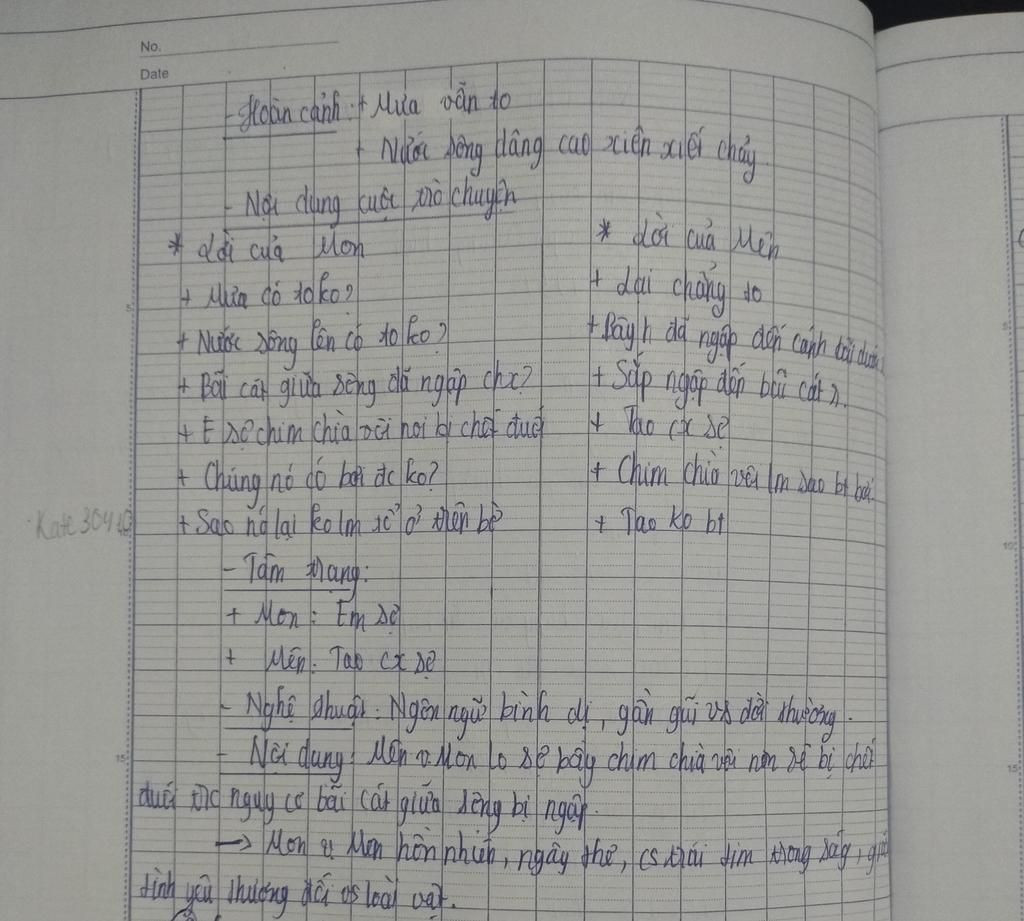 No.
Date
- Hoàn cảnh: + Mưa vẫn to
+ Nước sông dâng cao xiên xiết chảy.
- Nội dung cuộc trò chuyện
* Lời của Mon
* Lời của Mên
+ Mưa có to ko?
+ Lại chẳng to
+ Nước sông lên có to ko?
+ Bây h đã ngập đến cánh bãi dưới
+ Bãi cát giữa sông đã ngập chx?
+ Sắp ngập đến bãi cát r.
+ E sợ chim chìa vôi non bị chết đuối
+ Tao cx sợ
+ Chúng nó có bơi đc ko?
+ Chim chìa vôi lm sao bt bơi.
+ Sao nó lại ko lm tổ ở trên bờ
+ Tao ko bt
- Tâm trạng:
+ Mon: Em sợ
+ Mên: Tao cx sợ
- Nghệ thuật: Ngôn ngữ bình dị, gần gũi vs đời thường.
- Nội dung: Mên và Mon lo sợ bầy chim chìa vôi non sẽ bị chết
đuối trc nguy cơ bãi cát giữa sông bị ngập.
→ Mon và Mên hồn nhiên, ngây thơ, có trái tim trong sáng, giàu
tình yêu thương đối vs loài vật.